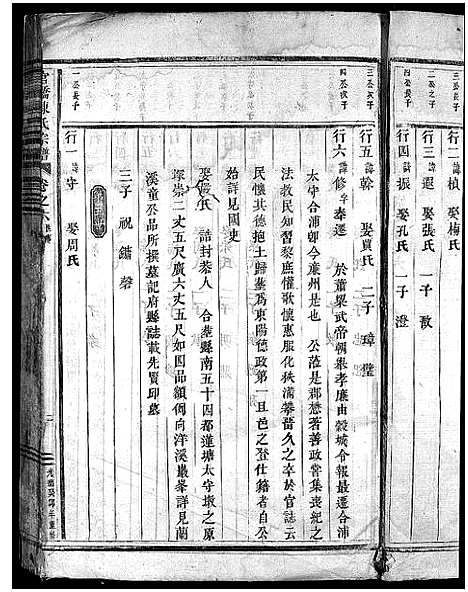 二公長子
行二 諱楨 娶梅氏
二公之子
行三 諱遐 娶張氏 一子 敔
四公長子
行四 諱振 娶孔氏 一子 澄
三公次子
行五 諱幹 娶賈氏 二子 璋 瑩
四公次子
行六 諱修 字奉遷 於蕭梁武帝朝舉孝廉由穀城令報最遷合浦
太守合浦卽今廉州是也 公蒞是郡懋著善政嘗集喪紀之
法教民知習黎庶懽歌懷惠服化狹滿攀畱久之卒於官誌云
民懷其德抱土歸塟爲東陽德政第一且邑之登仕籍者自公
始詳見國史
娶嚴氏 誥封恭人 合塟縣南五十四都蓮塘太守墩之原
塚崇二丈五尺廣六丈五尺如因品額倜向洋溪叢峯詳見蘭
溪童公品所撰墓記府縣誌載先賢邱墓
三子 祝 鏽 榮
一公長子
行一 諱守 娶周氏
官橋陳氏宗譜
卷之六